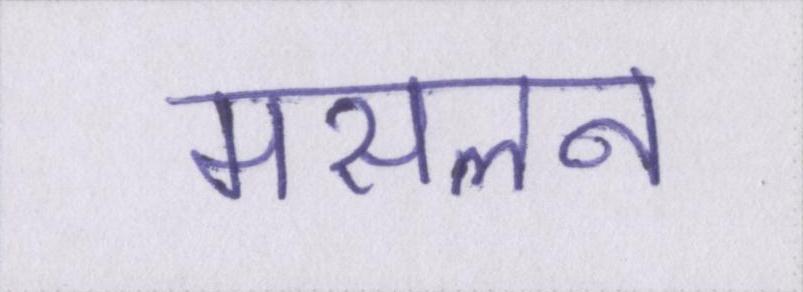 मसलन